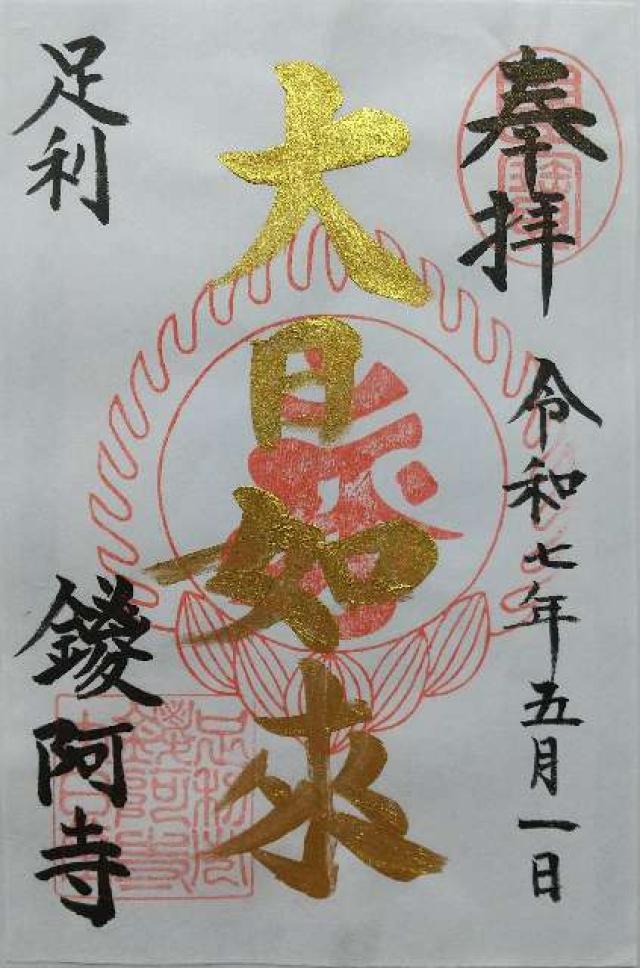 奉拝
令和七年五月一日
大日如来
足利
鑁阿寺